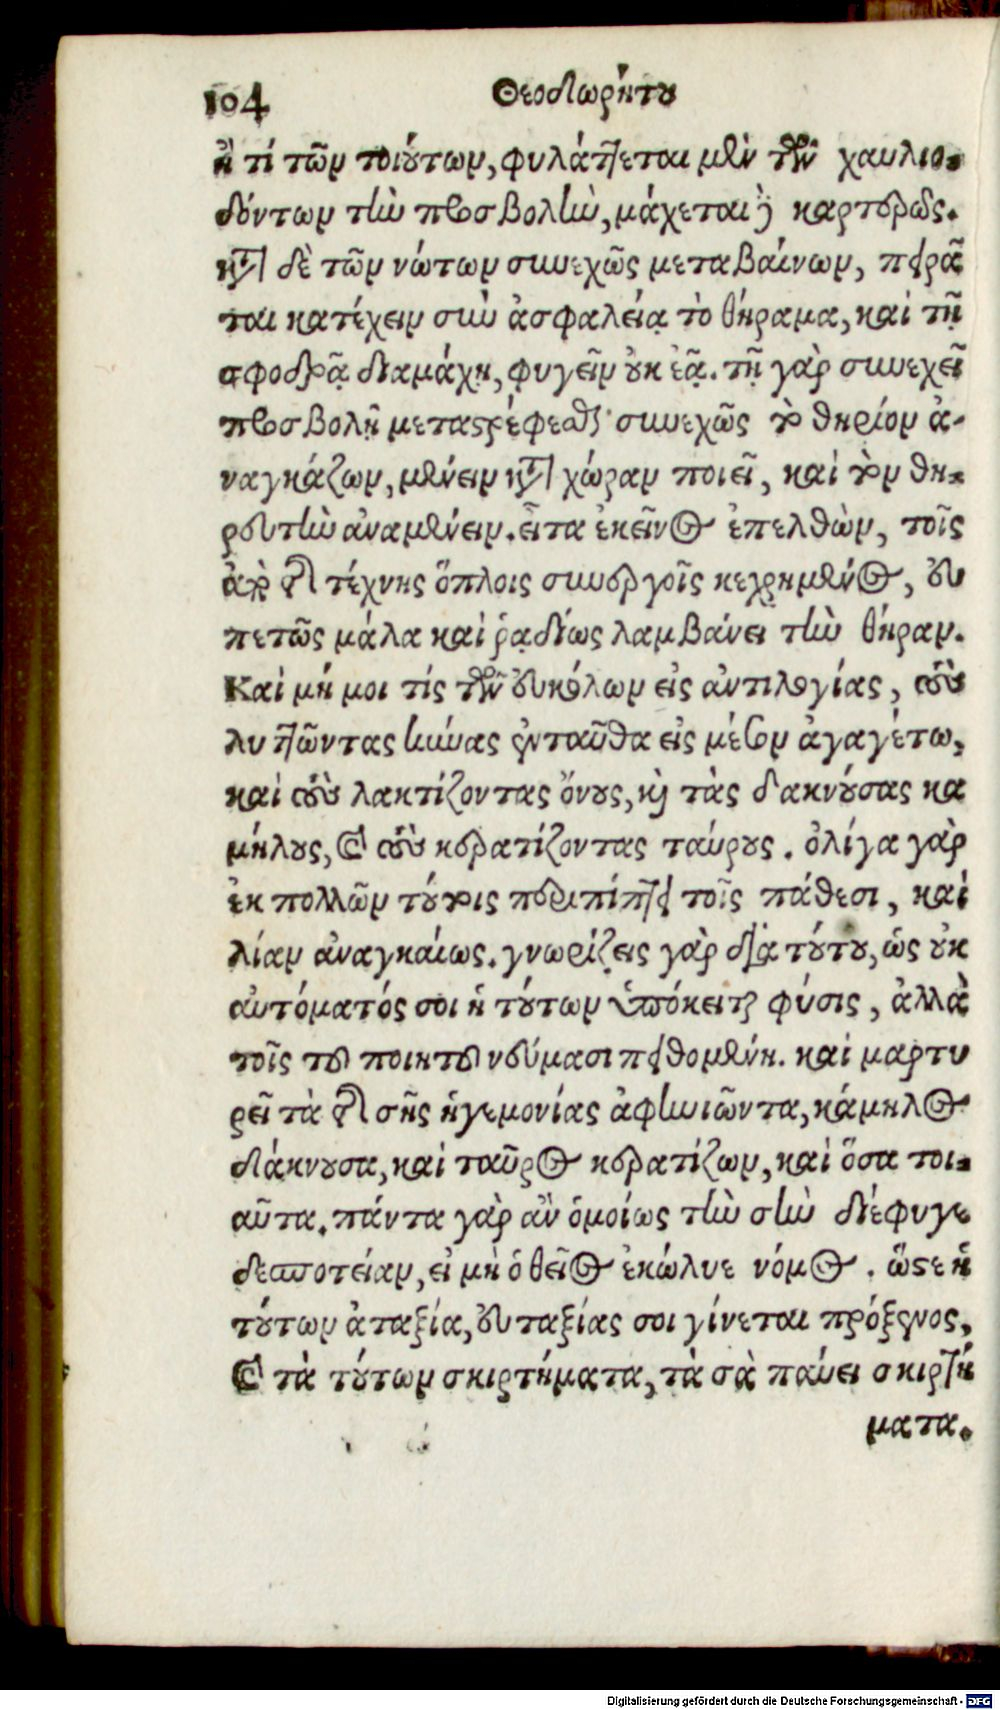 104 Θεοδωρήτου
ἤ τί τῶν τοιούτων, φυλάττεται μὲν τῶν χαυλιο-
δόντων τὴν προσβολὴν, μάχεται δὲ καρτερῶς.
κατὰ δὲ τῶν νώτων συνεχῶς μεταβαίνων, πειρᾶ
ται κατέχειν σὺν ἀσφαλείᾳ τὸ θήραμα, καὶ τῇ
σφοδρᾷ διαμάχῃ, φυγεῖν οὐκ ἐᾷ. τῇ γὰρ συνεχεῖ
προσβολῇ μεταστρέφεσθαι συνεχῶς τὸ θηρίον ἀ-
ναγκάζων, μένειν κατὰ χώραν ποιεῖ, καὶ τὸν θη-
ρευτὴν ἀναμένειν. εἶτα ἐκεῖνος ἐπελθὼν, τοῖς
ἀπὸ τῆς τέχνης ὅπλοις συνεργοῖς κεχρημένος, εὐ
πετῶς μάλα καὶ ῥᾳδίως λαμβάνει τὴν θήραν.
Καὶ μή μοι τίς τῶν εὐκόλων εἰς ἀντιλογίας, τοὺς
λυττῶντας κύνας ἐνταῦθα εἰς μέσον ἀγαγέτω,
καὶ τοὺς λακτίζοντας ὄνους, καὶ τὰς δακνούσας κα
μήλους, καὶ τοὺς κερατίζοντας ταύρους. ὀλίγα γὰρ
ἐκ πολλῶν τούτοις περιπίπτει τοῖς πάθεσι, καὶ
λίαν ἀναγκαίως. γνωρίζεις γὰρ διὰ τούτου, ὡς οὐκ
αὐτόματός σοι ἡ τούτων ὑπόκειται φύσις, ἀλλὰ
τοῖς τοῦ ποιητοῦ νεύμασι πειθομένη. καὶ μαρτυ
ρεῖ τὰ τῆς σῆς ἡγεμονίας ἀφηνιῶντα, κάμηλος
δάκνουσα, καὶ ταῦρος κερατίζων, καὶ ὅσα τοι-
αῦτα. πάντα γὰρ ἂν ὁμοίως τὴν σὴν διέφυγε
δεσποτείαν, εἰ μὴ ὁ θεῖος ἐκώλυε νόμος. ὥστε ἡ
τούτων ἀταξία, εὐταξίας σοι γίνεται πρόξενος,
καὶ τὰ τούτων σκιρτήματα, τὰ σὰ παύει σκιρτή
ματα.
Digitalisierung gefördert durch die Deutsche Forschungsgemeinschaft - DFG